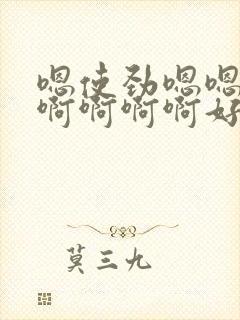 嗯使劲嗯嗯
啊啊啊啊好
莫三九